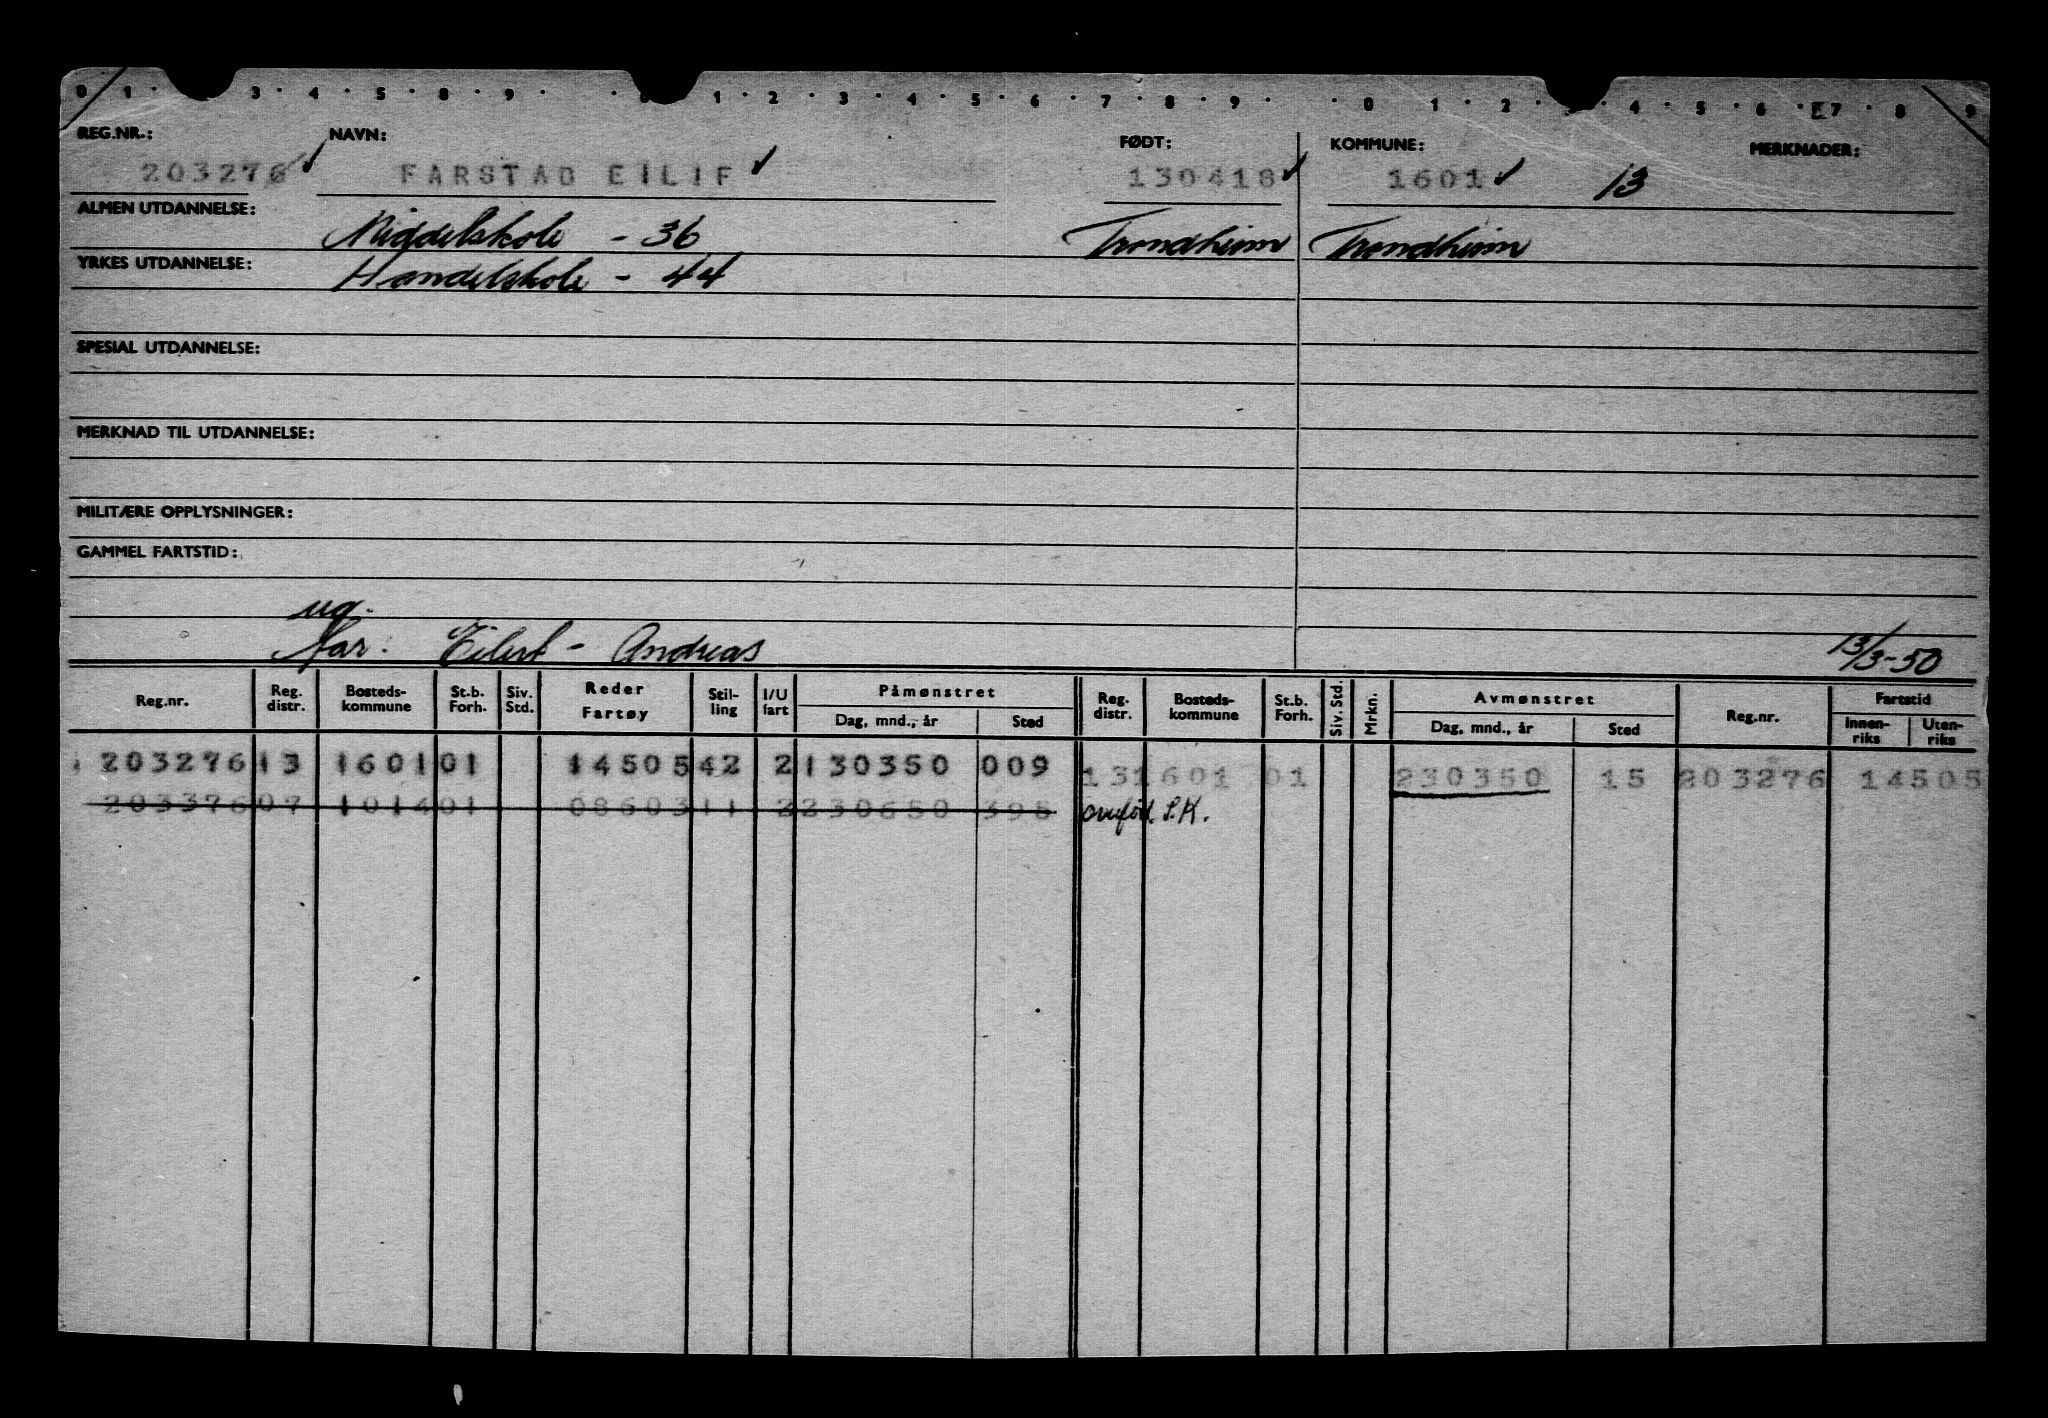 0 1 · 3 · 4 · 5 · 8 · 9 · · 1 · 2 · 3 · 4 · 5 · 6 · 7 · 8 · 9 · · 0 · 1 · 2 · · 4 · 5 · 6 · 7 · 8 · 9
REG.NR.: NAVN: FØDT: KOMMUNE: MERKNADER:
203276 ✓ FARSTAD EILIF ✓ 130418 ✓ 1601 ✓ 13
ALMEN UTDANNELSE: Middelskole - 36 Trondheim Trondheim
YRKES UTDANNELSE: Handelskole - 44
SPESIAL UTDANNELSE:
MERKNAD TIL UTDANNELSE:
MILITÆRE OPPLYSNINGER:
GAMMEL FARTSTID:
ug.
far: Eilert - Andreas 13/3-50
Reg.nr. Reg. distr. Bosteds- kommune St.b. Forh. Siv. Std. Reder Fartøy Stil- ling I/U fart Påmønstret Dag, mnd., år Sted Reg. distr. Bosteds- kommune St.b. Forh. Siv. Std. Mrkn. Avmønstret Dag, mnd., år Sted Reg.nr. Fartstid Innen- riks Uten- riks
203276 13 1601 01 14505 42 2 130350 009 13 1601 01 230350 15 203276 14505
203376 07 1014 01 08603 11 2 230650 395 overf. S.K.